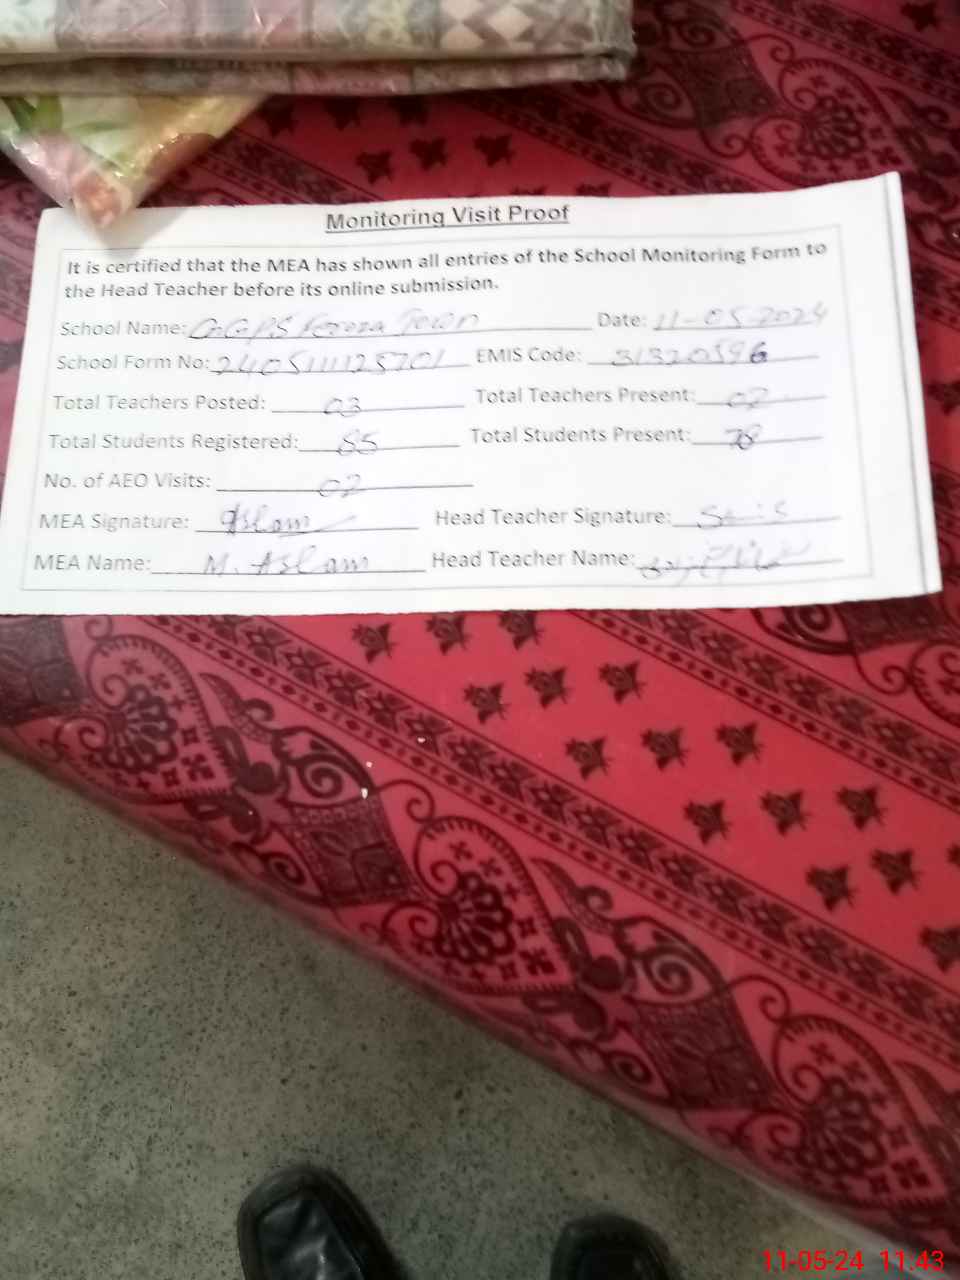 Monitoring Visit Proof
It is certified that the MEA has shown all entries of the School Monitoring Form to
the Head Teacher before its online submission.
School Name: GGPS Feroza Town Date: 11-05-2024
School Form No: 2405111125701 EMIS Code: 31320596
Total Teachers Posted: 03 Total Teachers Present: 02
Total Students Registered: 85 Total Students Present: 78
No. of AEO Visits: 02
MEA Signature: Aslam Head Teacher Signature:
MEA Name: M. Aslam Head Teacher Name:
11-05-24 11:43